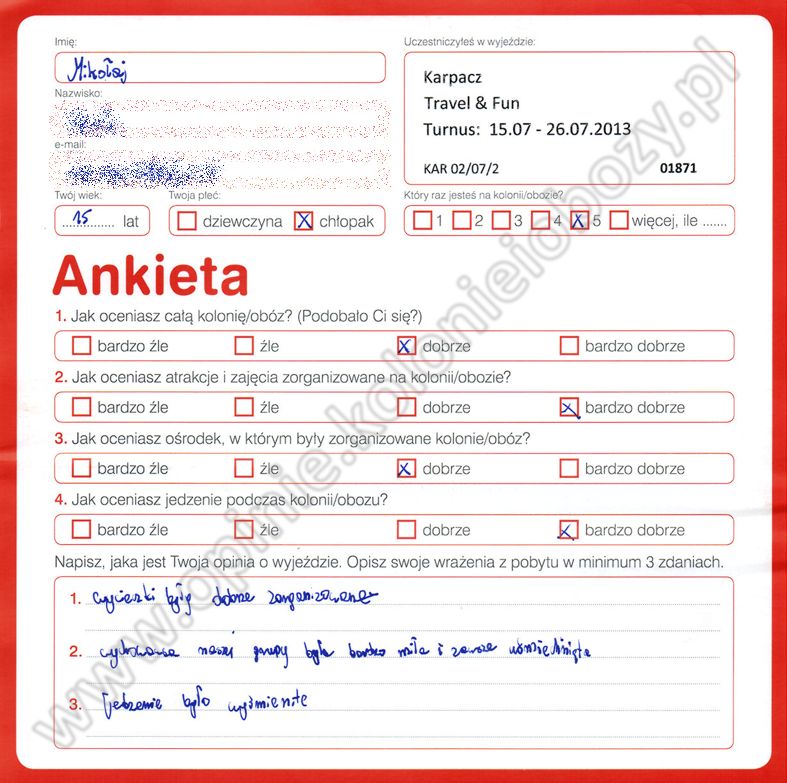 Imię:
Mikołaj
Uczestniczyłeś w wyjeździe:
Karpacz
Travel & Fun
Turnus: 15.07 - 26.07.2013
KAR 02/07/2 01871
Nazwisko:
e-mail:
Twój wiek: Twoja płeć: Który raz jesteś na kolonii/obozie?
15 lat dziewczyna X chłopak 1 2 3 4 X 5 więcej, ile .......
Ankieta
1. Jak oceniasz całą kolonię/obóz? (Podobało Ci się?)
bardzo źle źle X dobrze bardzo dobrze
2. Jak oceniasz atrakcje i zajęcia zorganizowane na kolonii/obozie?
bardzo źle źle dobrze X bardzo dobrze
3. Jak oceniasz ośrodek, w którym były zorganizowane kolonie/obóz?
bardzo źle źle X dobrze bardzo dobrze
4. Jak oceniasz jedzenie podczas kolonii/obozu?
bardzo źle źle dobrze X bardzo dobrze
Napisz, jaka jest Twoja opinia o wyjeździe. Opisz swoje wrażenia z pobytu w minimum 3 zdaniach.
1. wycieczki były dobrze zorganizowane
2. wychowawca naszej grupy była bardzo miła i zawsze uśmiechnięta
3. jedzenie było wyśmienite
www.opinie.kolonieiobozy.pl